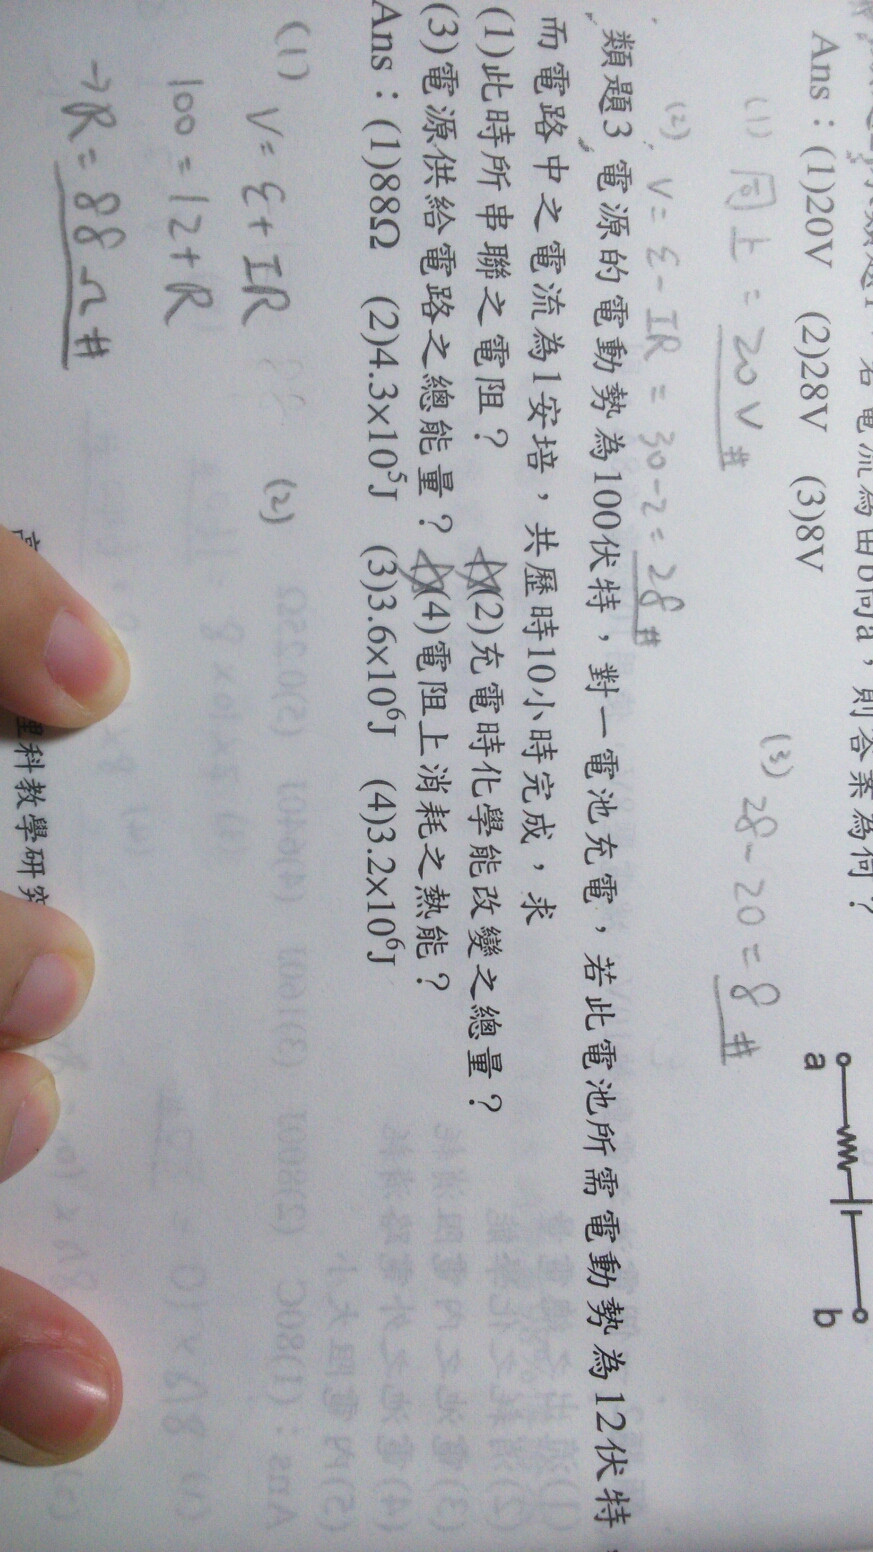 若電流為由b向a，則答案為何？
Ans：(1)20V (2)28V (3)8V
a b
(1) 同上 = 20V #
(3) 28-20=8 #
(2) V=ε-IR=30-2=28#
類題3 電源的電動勢為100伏特，對一電池充電，若此電池所需電動勢為12伏特，
而電路中之電流為1安培，共歷時10小時完成，求
(1)此時所串聯之電阻？ (2)充電時化學能改變之總量？
(3)電源供給電路之總能量？ (4)電阻上消耗之熱能？
Ans：(1)88Ω (2)4.3x10⁵J (3)3.6x10⁶J (4)3.2x10⁶J
(1) V=ε+IR (2)
100=12+R
→R=88Ω#
理科教學研究